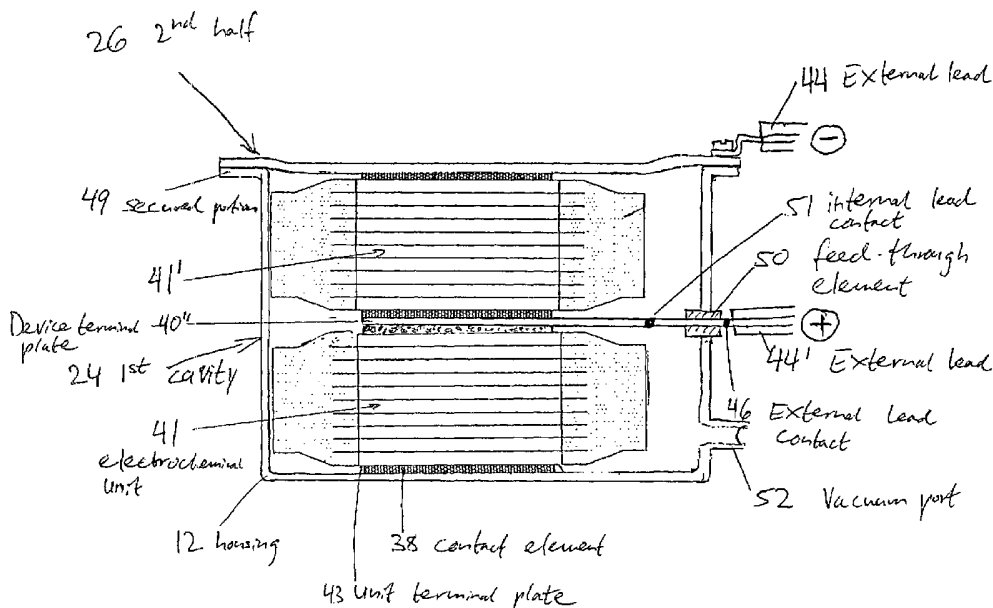 26 2nd half
44 External lead
−
49 secured portion
51 internal lead
contact
50 feed-through
element
41'
Device terminal 40"
plate
+
44' External lead
24 1st cavity
41
electrochemical
unit
46 External Lead
Contact
52 Vacuum port
12 housing
38 contact element
43 unit terminal plate